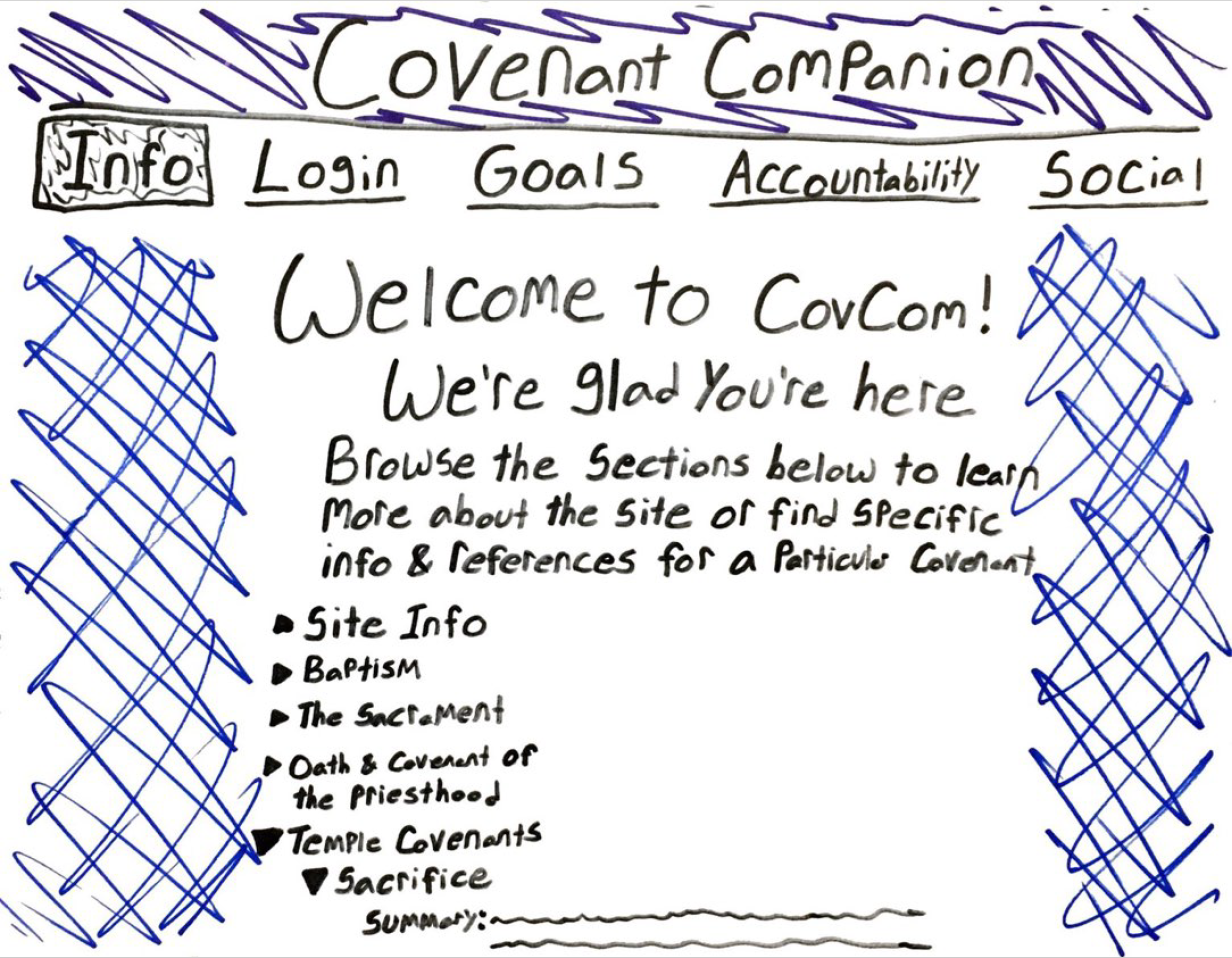 Covenant Companion
Info Login Goals Accountability Social
Welcome to CovCom!
We're glad You're here
Browse the Sections below to learn
More about the site or find Specific
info & references for a Particular Covenant
Site Info
Baptism
The Sacrament
Oath & Covenant of
the Priesthood
Temple Covenants
Sacrifice
Summary: